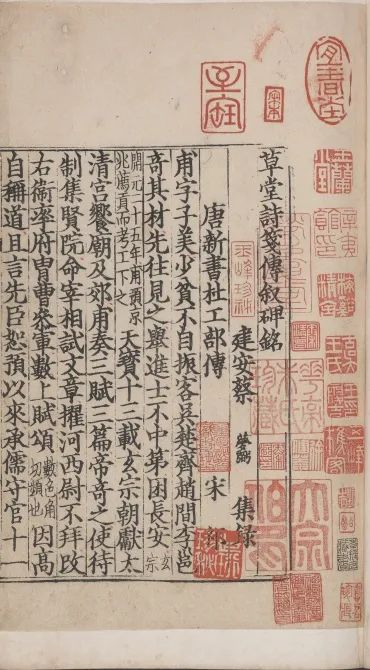 草堂詩箋傳敘碑銘
建安蔡 夢弼 集錄
唐新書杜工部傳 宋 祁
甫字子美少貧不自振客吳越齊趙間李邕
奇其材先往見之舉進士不中第困長安 玄宗
開元二十五年甫預京兆薦貢而考工下之 天寶十三載玄宗朝獻太
清宮饗廟及郊甫奏三賦三篇帝奇之使待
制集賢院命宰相試文章擢河西尉不拜改
右衛率府胄曹參軍數上賦頌 數色角切頻也 因高
自稱道且言先臣恕預以來承儒守官十一
宜春堂
玉蘭堂
大宗伯印